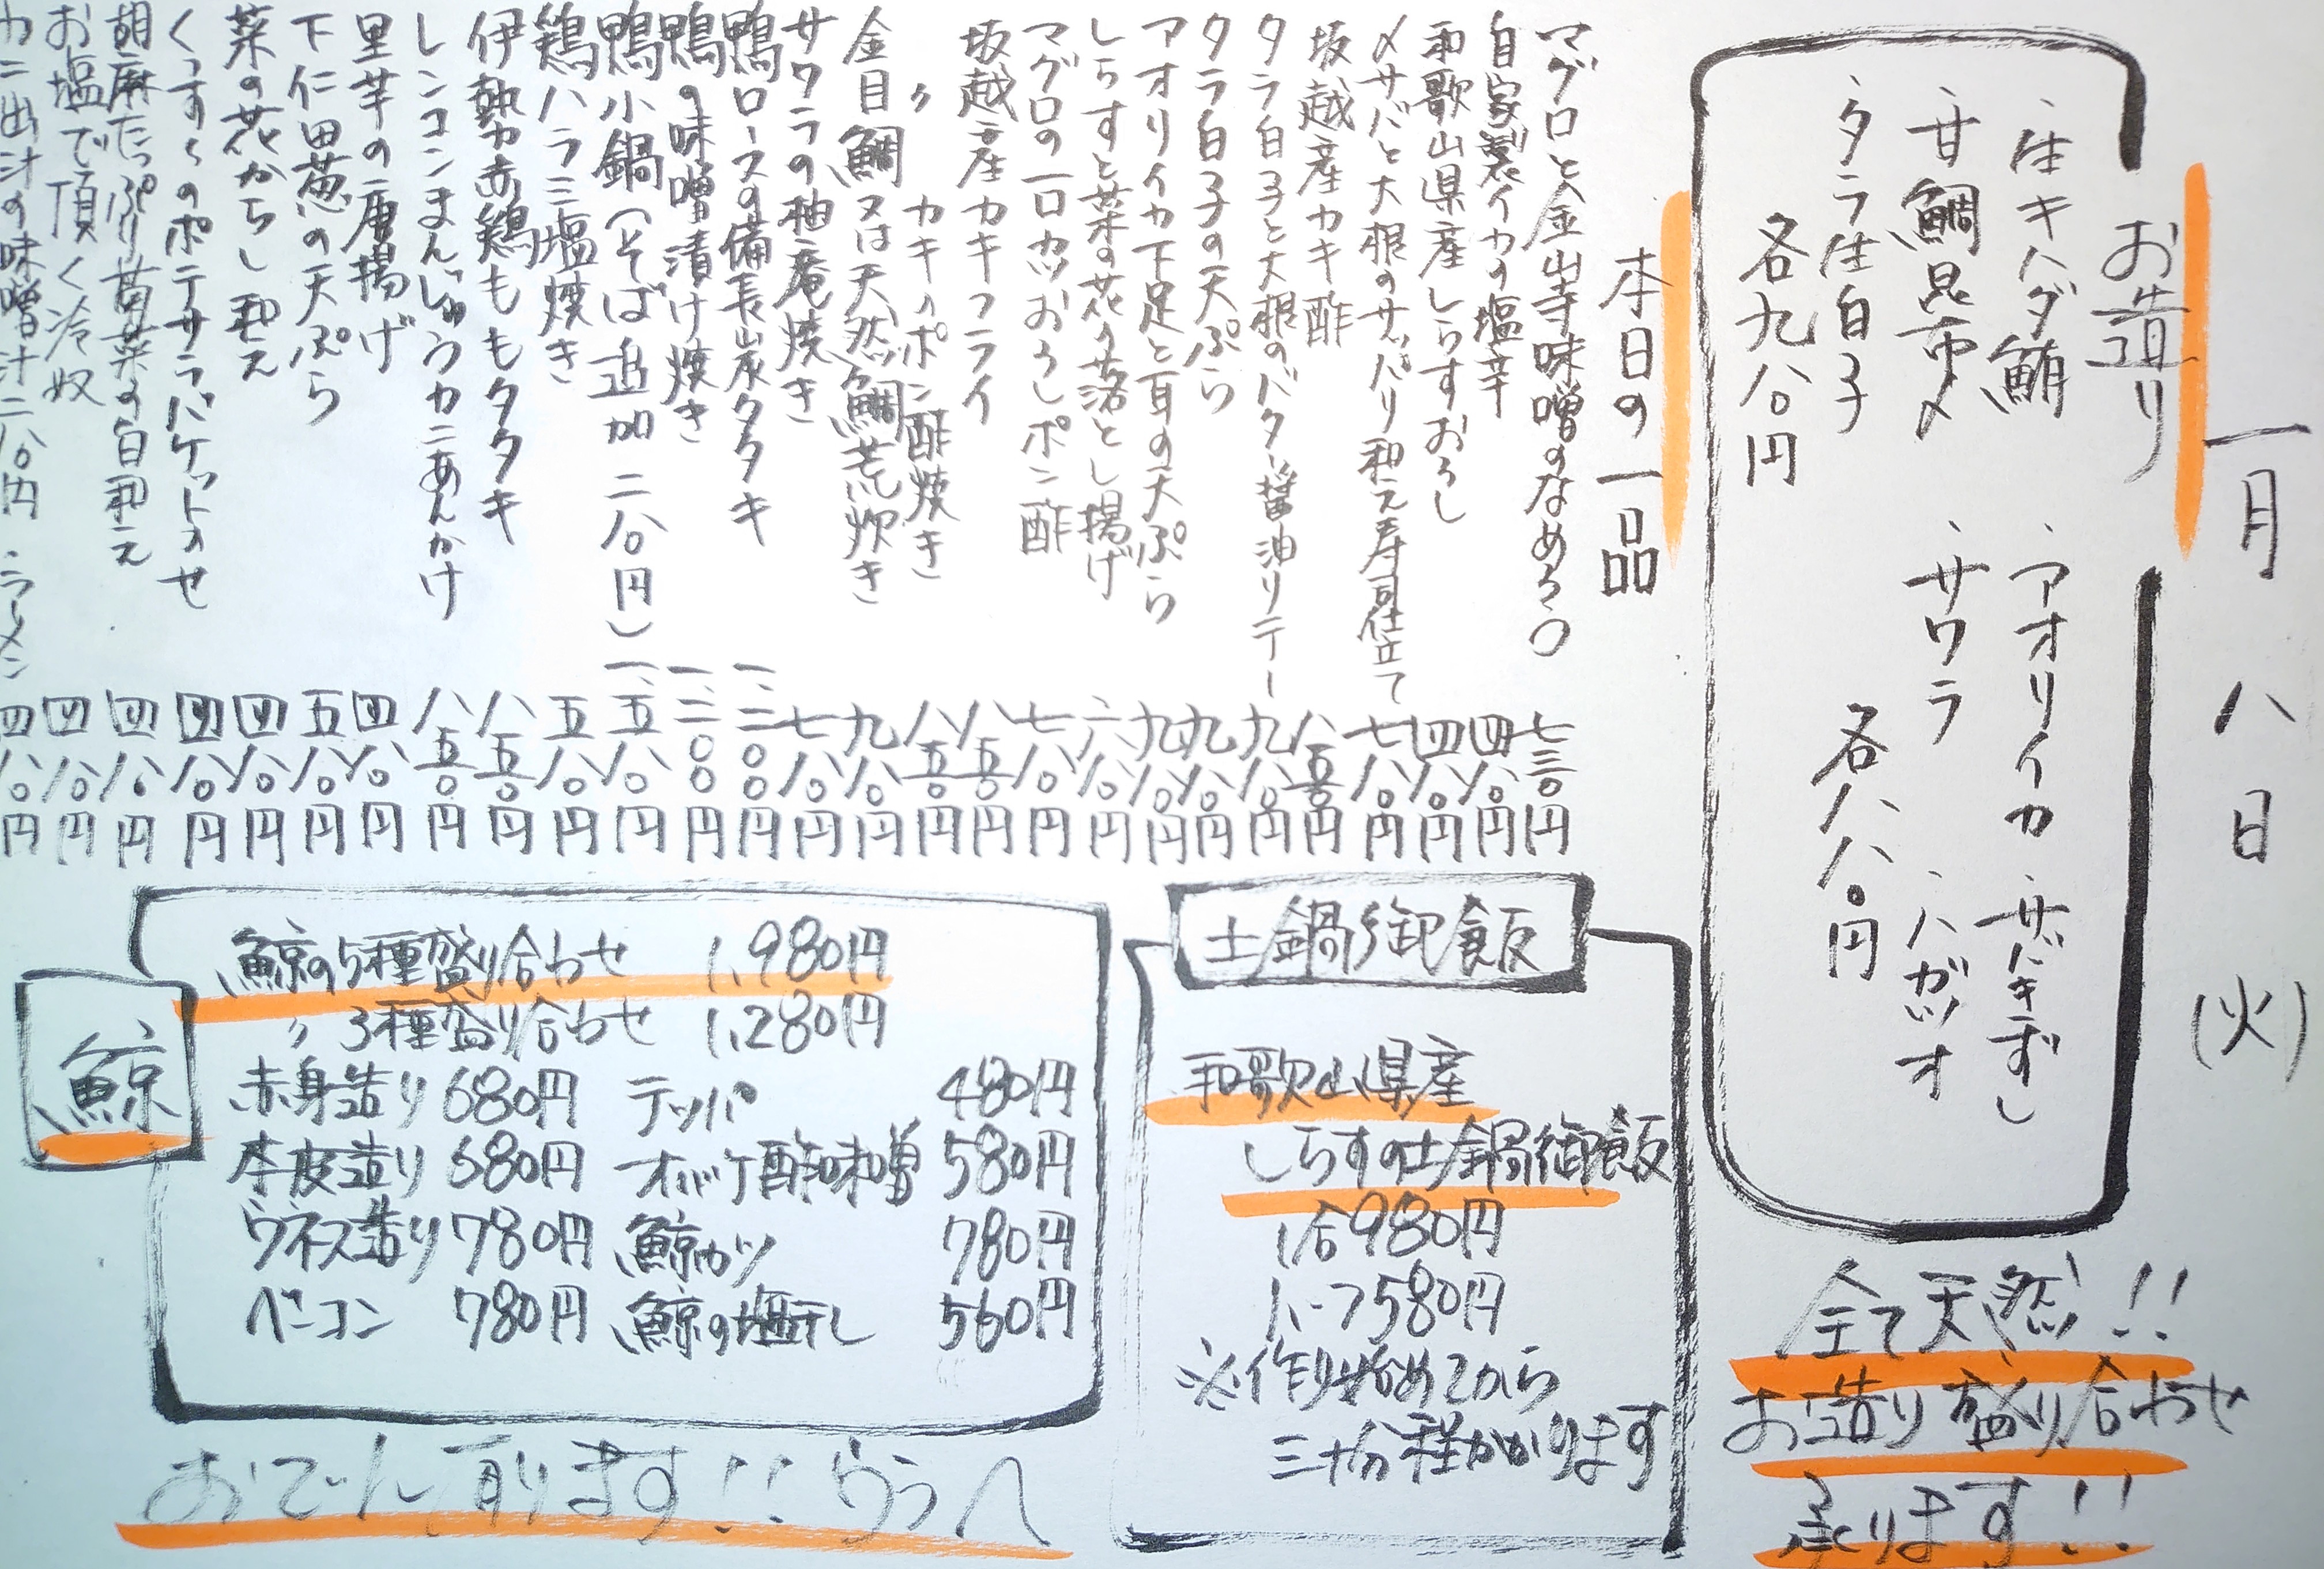 一月八日(火)
お造り
・生キハダ鮪
・アオリイカ
・サバきずし
・甘鯛昆布〆
・サワラ
・ハガツオ
・タラ生白子
各八八〇円
各九八〇円
全て天然!!
お造り盛り合わせ
承ります!!
本日の一品
マグロと金山寺味噌のなめろう 七三〇円
自家製イカの塩辛 四八〇円
和歌山県産しらすおろし 四八〇円
〆サバと大根のサッパリ和え寿司仕立て 七八〇円
坂越産カキ酢 八五〇円
タラ白子と大根のバター醤油リテー 九八〇円
タラ白子の天ぷら 九八〇円
アオリイカ下足と耳の天ぷら 九八〇円
しらすと菜の花の落とし揚げ 六八〇円
マグロの一口カツおろしポン酢 七八〇円
坂越産カキフライ 八五〇円
〃 カキのポン酢焼き 八五〇円
金目鯛又は天然鯛荒炊き 九八〇円
サワラの柚庵焼き 七八〇円
鴨ロースの備長炭タタキ 一、二〇〇円
鴨の味噌漬け焼き 一、二〇〇円
鴨小鍋(そば追加二八〇円) 一、五八〇円
鶏ハラミ塩焼き 五八〇円
伊勢赤鶏ももタタキ 八五〇円
レンコンまんじゅうカニあんかけ 八五〇円
里芋の唐揚げ 四八〇円
下仁田葱の天ぷら 五八〇円
菜の花からし和え 四八〇円
くつすくのポテサラバケットのせ 四八〇円
胡麻たっぷり菊菜の白和え 四八〇円
お塩で頂く冷奴 四八〇円
カニ出汁の味噌汁二八〇円 ミラーメン 四八〇円
土鍋御飯
和歌山県産
しらすの土鍋御飯
1合980円
ハーフ580円
※作り始めてから
三十分程かかります
鯨
鯨の5種盛り合わせ 1,980円
〃 3種盛り合わせ 1,280円
赤身造り 680円 テッパ 480円
本皮造り 680円 オバケ酢味噌 580円
ウネス造り 780円 鯨カツ 780円
ベーコン 780円 鯨の塩干し 560円
おでん有ります!!うらへ